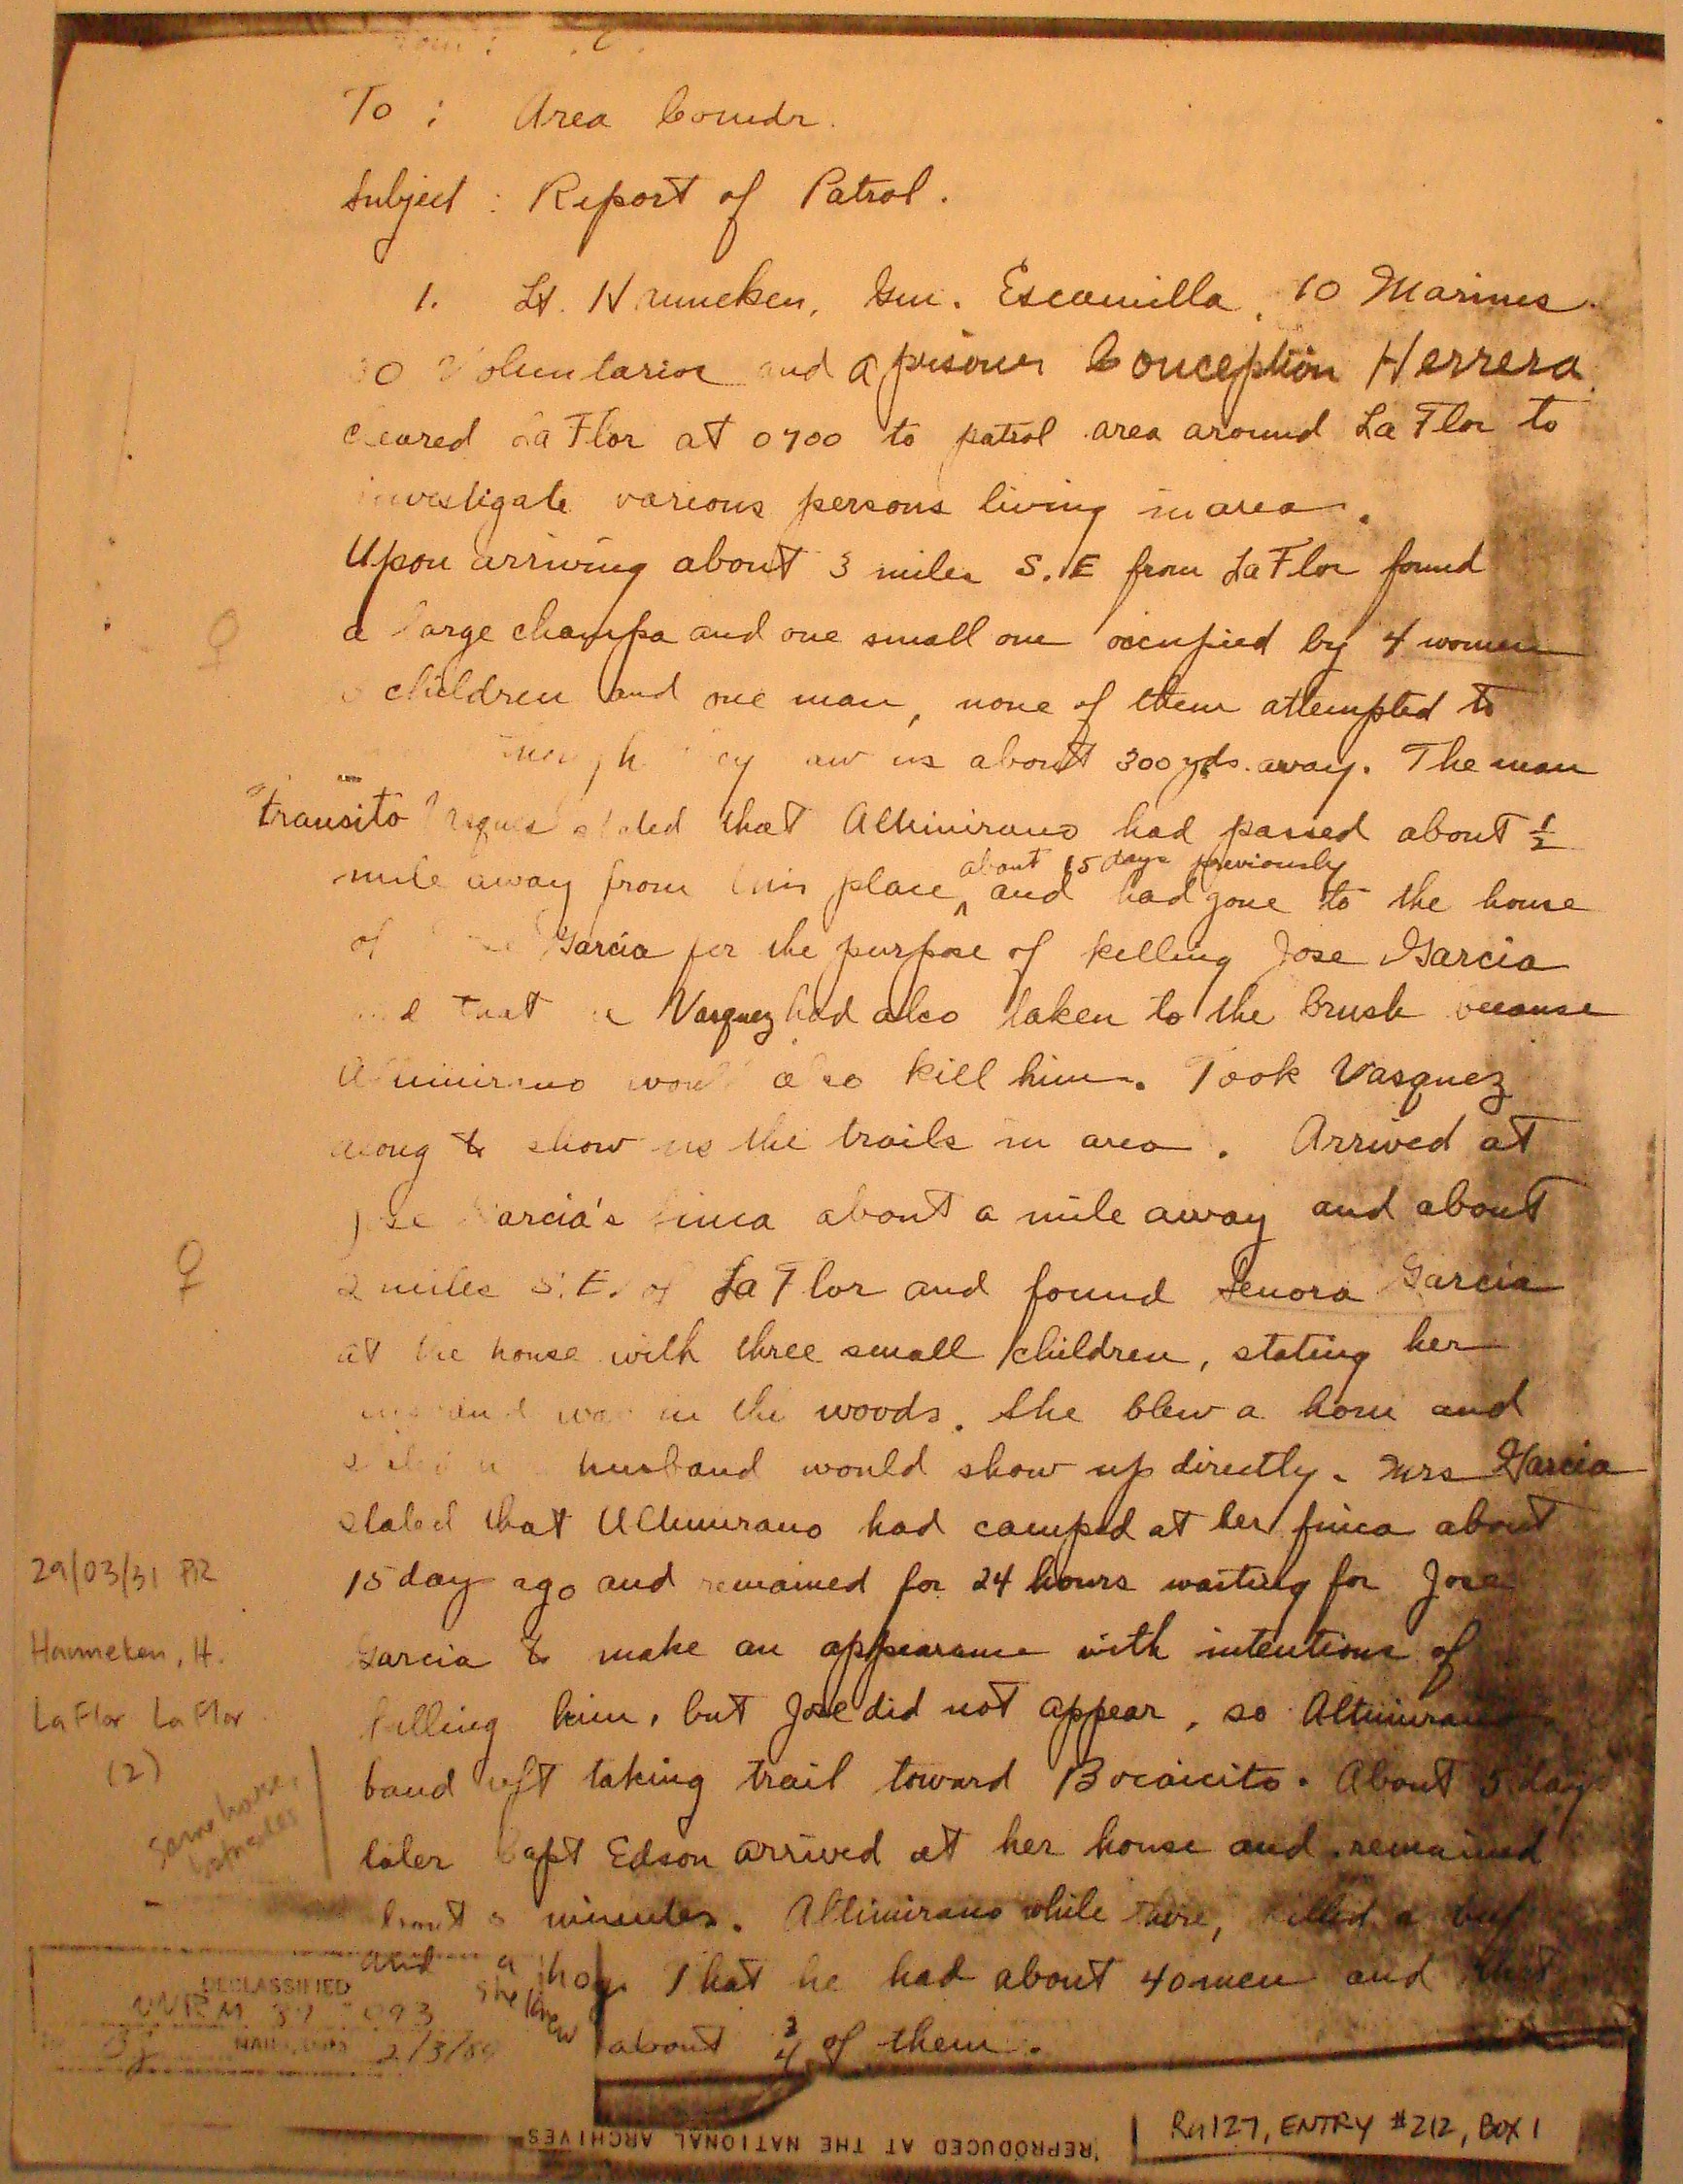 To : Area Comdr.
Subject : Report of Patrol.
1. Lt. Hanneken, Gen. Escamilla, 10 Marines
30 Voluntarios and a prisoner Conception Herrera
cleared La Flor at 0700 to patrol area around La Flor to
investigate various persons living in area.
Upon arriving about 3 miles S.E from La Flor found
a large champa and one small one occupied by 4 women
children and one man, none of them attempted to
though they saw us about 300 yds. away. The man
transito stated that Altimirano had passed about ½
about 15 days previously
mile away from this place ^ and had gone to the house
of Jose Garcia for the purpose of killing Jose Garcia
and that he Vasquez had also taken to the brush because
Altimirano would also kill him. Took Vasquez
along to show us the trails in area. Arrived at
Jose Garcia's finca about a mile away and about
2 miles S.E. of La Flor and found Senora Garcia
at the house with three small children, stating her
husband was in the woods. She blew a horn and
husband would show up directly. Mrs Garcia
stated that Altimirano had camped at her finca about
15 day ago and remained for 24 hours waiting for Jose
Garcia to make an appearance with intentions of
killing him, but Jose did not appear, so Altimirano
band left taking trail toward Bocaicito. About 5 day
later Capt Edson arrived at her house and remained
about 5 minutes. Altimirano while there, killed a beef
and a hog. That he had about 40 men and that
she knew about ¾ of them.
♀
♀
29/03/31 PR
Hanneken, H.
La Flor La Flor
(2)
Same house,
DECLASSIFIED
2/3/89
REPRODUCED AT THE NATIONAL ARCHIVES
RG127, ENTRY #212, BOX 1